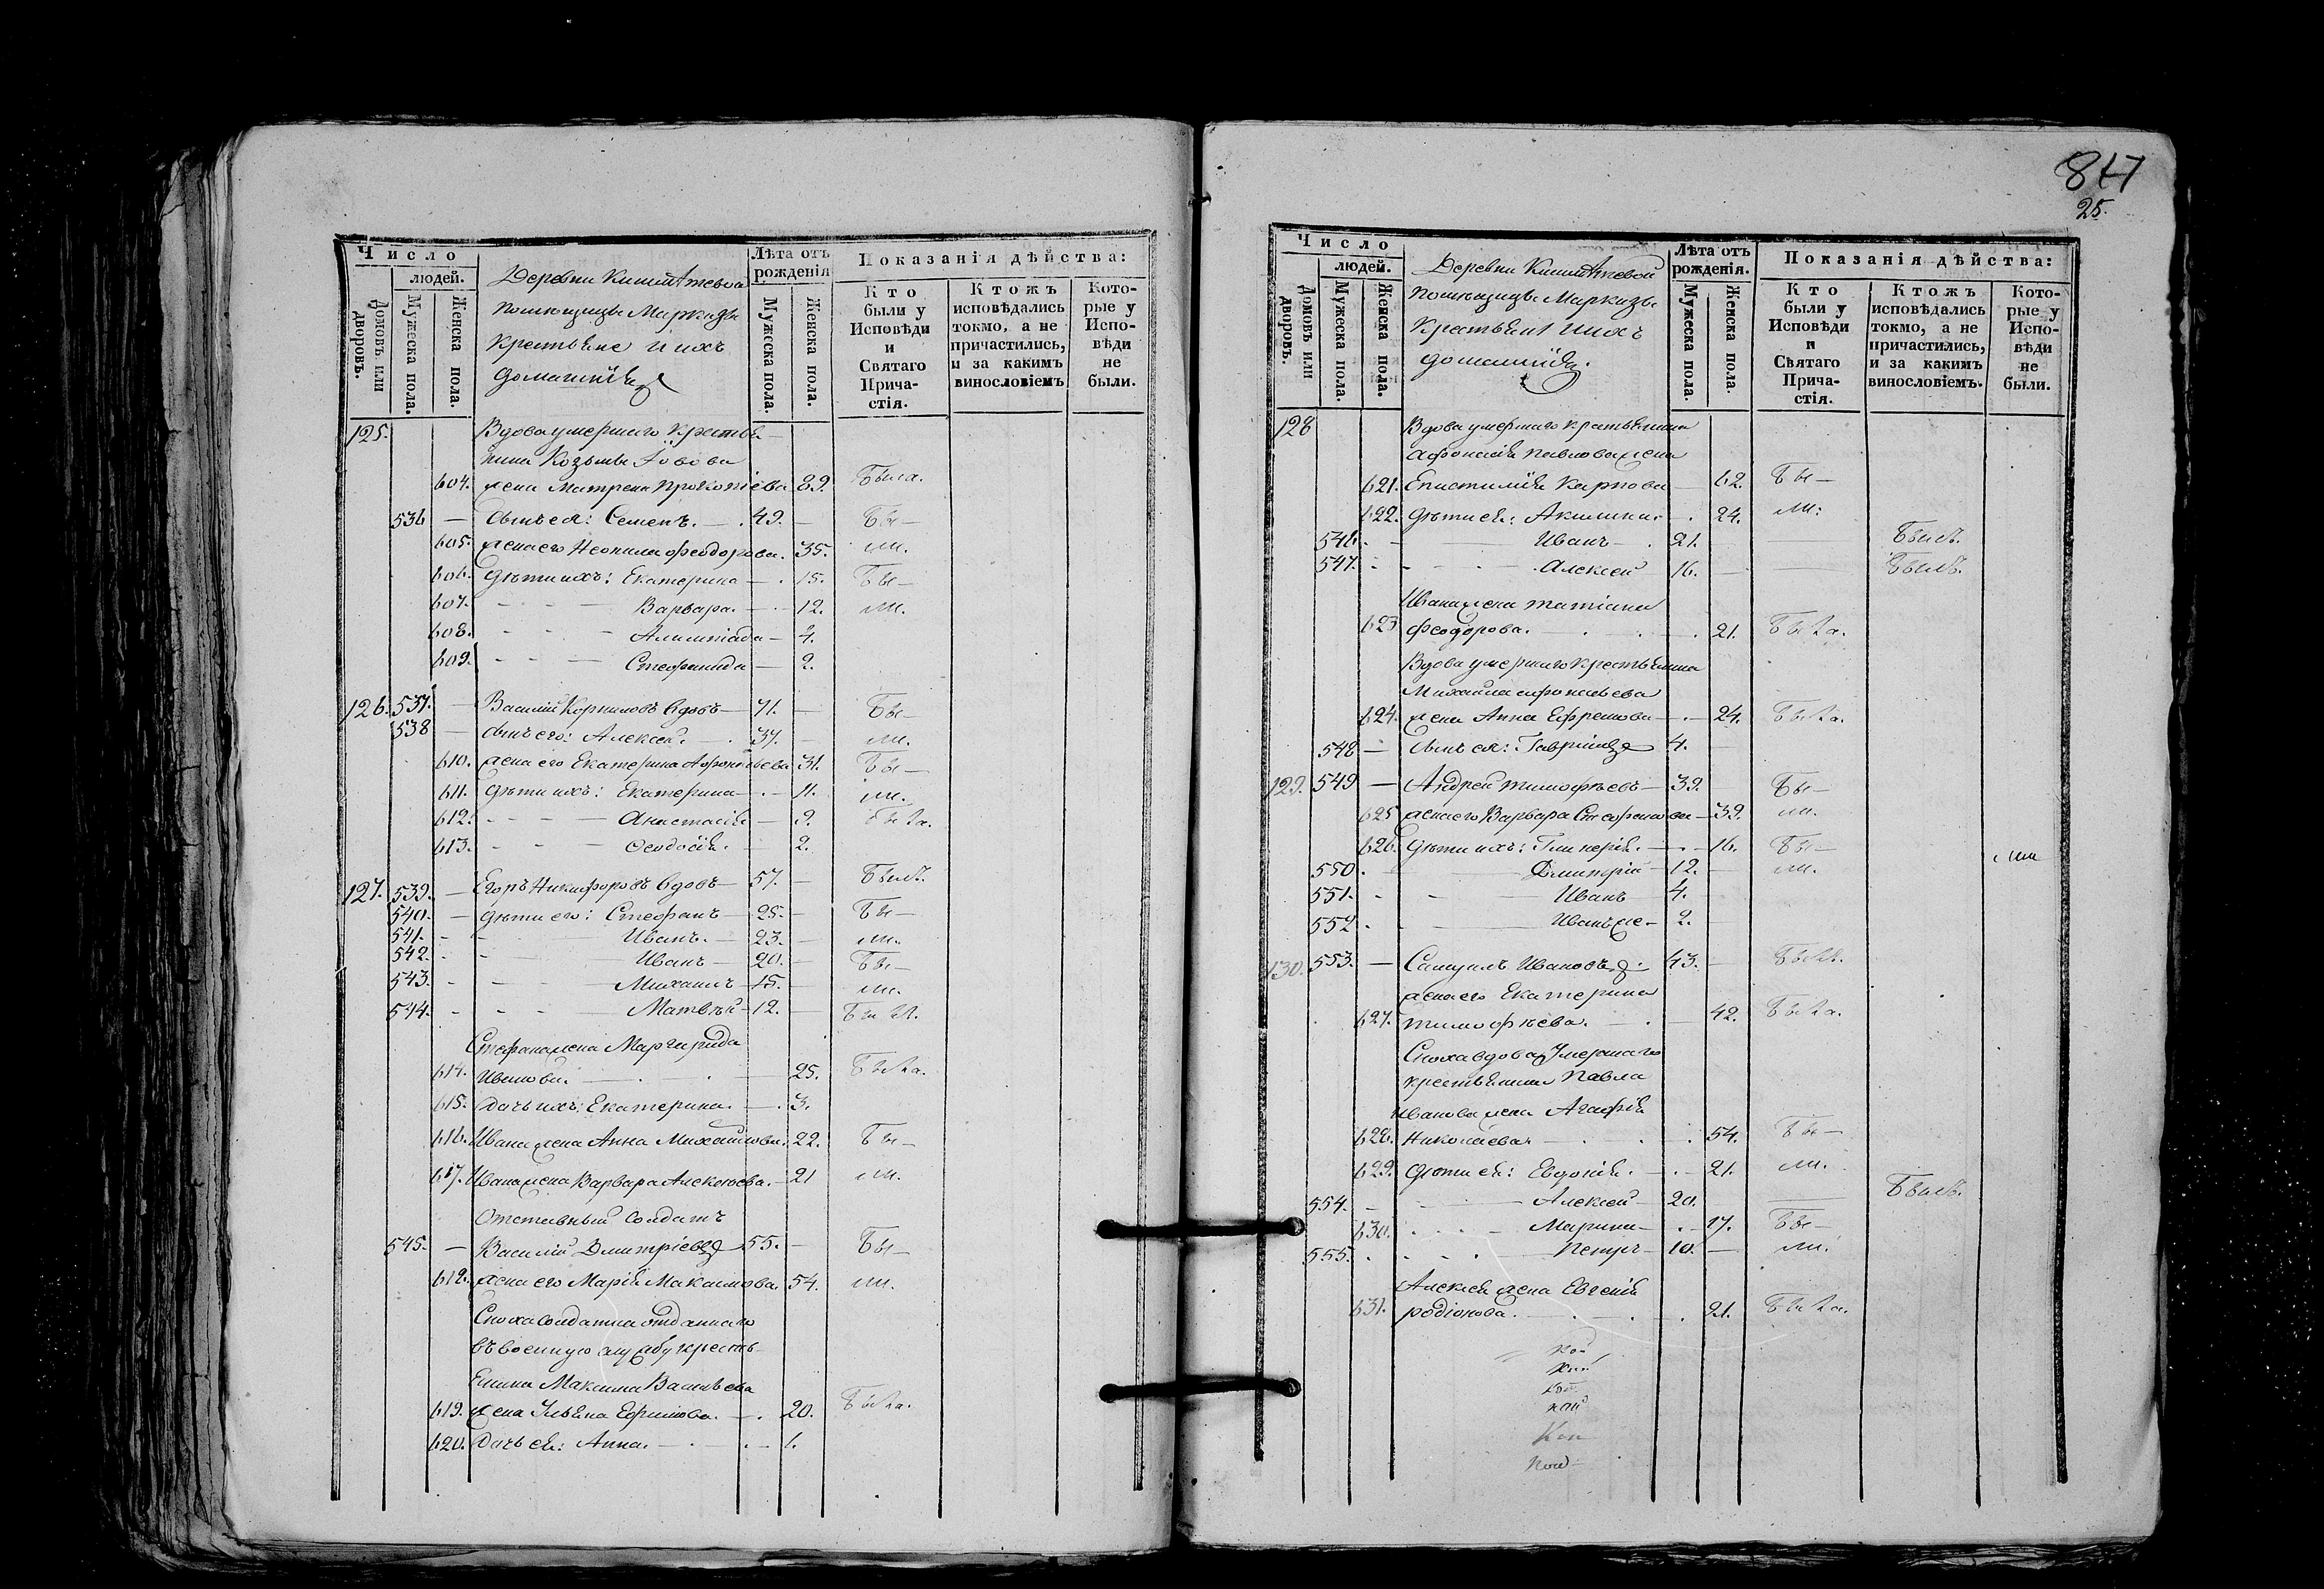 Число
людей.
Домовъ или дворовъ.
Мужеска пола.
Женска пола.
Деревни
помѣщицы Маркизы
крестьяне и ихъ
домашнія
Лѣта отъ рожденія
Мужеска пола.
Женска пола.
Показанія дѣйства:
Кто были у Исповѣди и Святаго Причастія.
Ктожъ исповѣдались токмо, а не причастились, и за какимъ винословіемъ
Которые у Исповѣди не были.
125. Вдова умершаго крестья-
нина Козьмы
604. жена Матрена Прокопіева 89. Была.
536 — сынъ ея: Семенъ. — 49. — Бы—
605. жена его Неонила Феодорова. 35. ли.
606. дѣти ихъ: Екатерина — 15. Бы—
607. Варвара. — 12. ли.
608. Алимпіада — 4.
609. Стефанида — 2.
126. 537. — Василій Корниловъ вдовъ — 71. — Бы—
538 — сынъ его: Алексѣй. — 37. — ли.
610. жена его Екатерина Афонасьева 31. Бы—
611. дѣти ихъ: Екатерина — 11. ли.
612. Анастасія — 9. Была.
613. Феодосія. 2.
127. 539. — Егоръ Никифоровъ вдовъ — 57. — Былъ.
540. — дѣти его: Стефанъ — 25. — Бы—
541. Иванъ. — 23. — ли.
542. Иванъ — 20. — Бы—
543. Михаилъ — 15. — ли.
544. Матвѣй — 12. — Былъ.
Стефана жена Маргарида
614. Иванова. 25. Была.
615. Дочь ихъ: Екатерина. 3.
616. Ивана жена Анна Михайлова. 22. Бы—
617. Ивана жена Варвара Алексѣева. — 21 ли.
Отставный солдатъ
545. — Василій Дмитріевъ 55. — Бы—
618. жена его Марія Максимова. 54. ли.
Сноха солдатка отданнаго
въ военную службу кресть-
янина Максима Васильева
619. жена Ульяна Ефимова. — 20. Была.
620. Дочь ея: Анна. — 1.
847
25.
Число
людей.
Домовъ или дворовъ.
Мужеска пола.
Женска пола.
Деревни
помѣщицы Маркизы
крестьяне и ихъ
домашнія.
Лѣта отъ рожденія.
Мужеска пола.
Женска пола.
Показанія дѣйства:
Кто были у Исповѣди и Святаго Причастія.
Ктожъ исповѣдались токмо, а не причастились, и за какимъ винословіемъ.
Которые у Исповѣди не были.
128 Вдова умершаго крестьянина
Афонасія Павлова жена
621. Епистимія Карпова 62. Бы—
622. дѣти ея: Акилина. 24. ли:
546. Иванъ — 21. Былъ.
547. Алексѣй 16. Былъ.
Ивана жена Татіана
623 Феодорова. 21. Была.
Вдова умершаго крестьянина
Михаила Афонасьева
624. жена Анна Ефремова — 24. Была.
548 — сынъ ея: Гавріилъ 4.
129. 549 — Андрей Тимофѣевъ — 39. Бы—
625 жена его Варвара Стефанова — 39. ли.
626. дѣти ихъ: Гликерія. — 16. Бы—
550. Димитрій — 12. — ли.
551. Иванъ 4.
552 Иванъ же — 2.
130. 553. — Самуилъ Ивановъ 43. Былъ.
жена его Екатерина
627. Тимофѣева. 42. Была.
Сноха вдова умершаго
крестьянина Павла
Иванова жена Агафія
628. Николаева 54. Бы—
629. дѣти ея: Евдокія. — 21. ли.
554. Алексѣй — 20. Былъ.
630. Марина — 17. Бы—
555. Петръ — 10. — ли.
Алексѣя жена Евгенія
631. Родіонова. 21. Была.